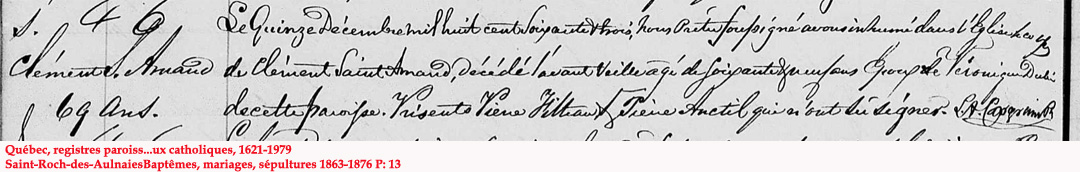 S. 46
Clément S. Amand
69 ans.
Le Quinze Décembre mil huit cent soixante trois, nous Prêtre soussigné avons inhumé dans l'Eglise le corps
de Clément Saint Amand, décédé l'avant veille agé de soixante & neuf ans Epoux de Véronique Dubé
de cette paroisse. Présents Pierre Pelletier & Pierre Anctil qui n'ont su signer.
Québec, registres paroiss...ux catholiques, 1621-1979
Saint-Roch-des-AulnaiesBaptêmes, mariages, sépultures 1863-1876 P: 13